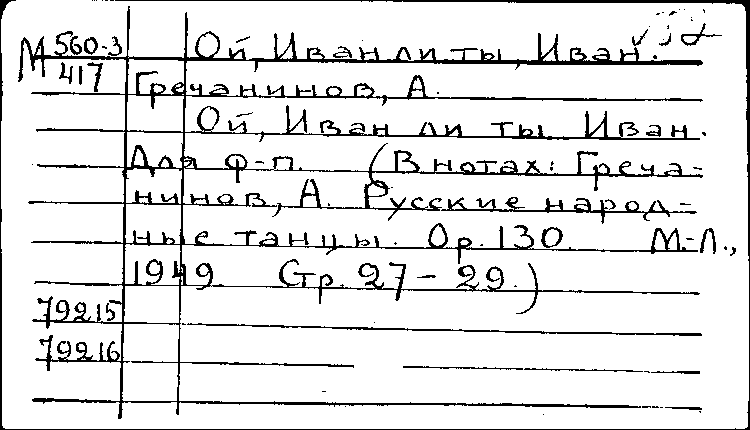 М 560-3 Ой, Иван ли ты, Иван.
417 Гречанинов, А.
Ой, Иван ли ты Иван.
Для ф-п. (В нотах: Греча-
нинов, А. Русские народ-
ные танцы. Ор. 130. М.-Л.,
1949. Стр. 27 - 29.)
79215
79216